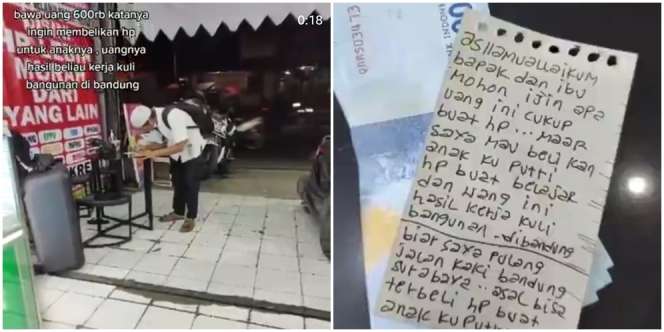 bawa uang 600rb katanya
ingin membelikan hp
untuk anaknya . uangnya
hasil beliau kerja kuli
bangunan di bandung
0:18
MURAH
DARI
YANG LAIN
asllamuallaikum
bapak dan ibu
mohon ijin apa
uang ini cukup
buat hp... maaf
saya mau beli kan
anak ku putri
hp buat belajar
dan uang ini
hasil kerja kuli
bangunan.. dibandung
biar saya pulang
jalan kaki bandung
surabaya.. asal bisa
terbeli hp buat
anak ku putri